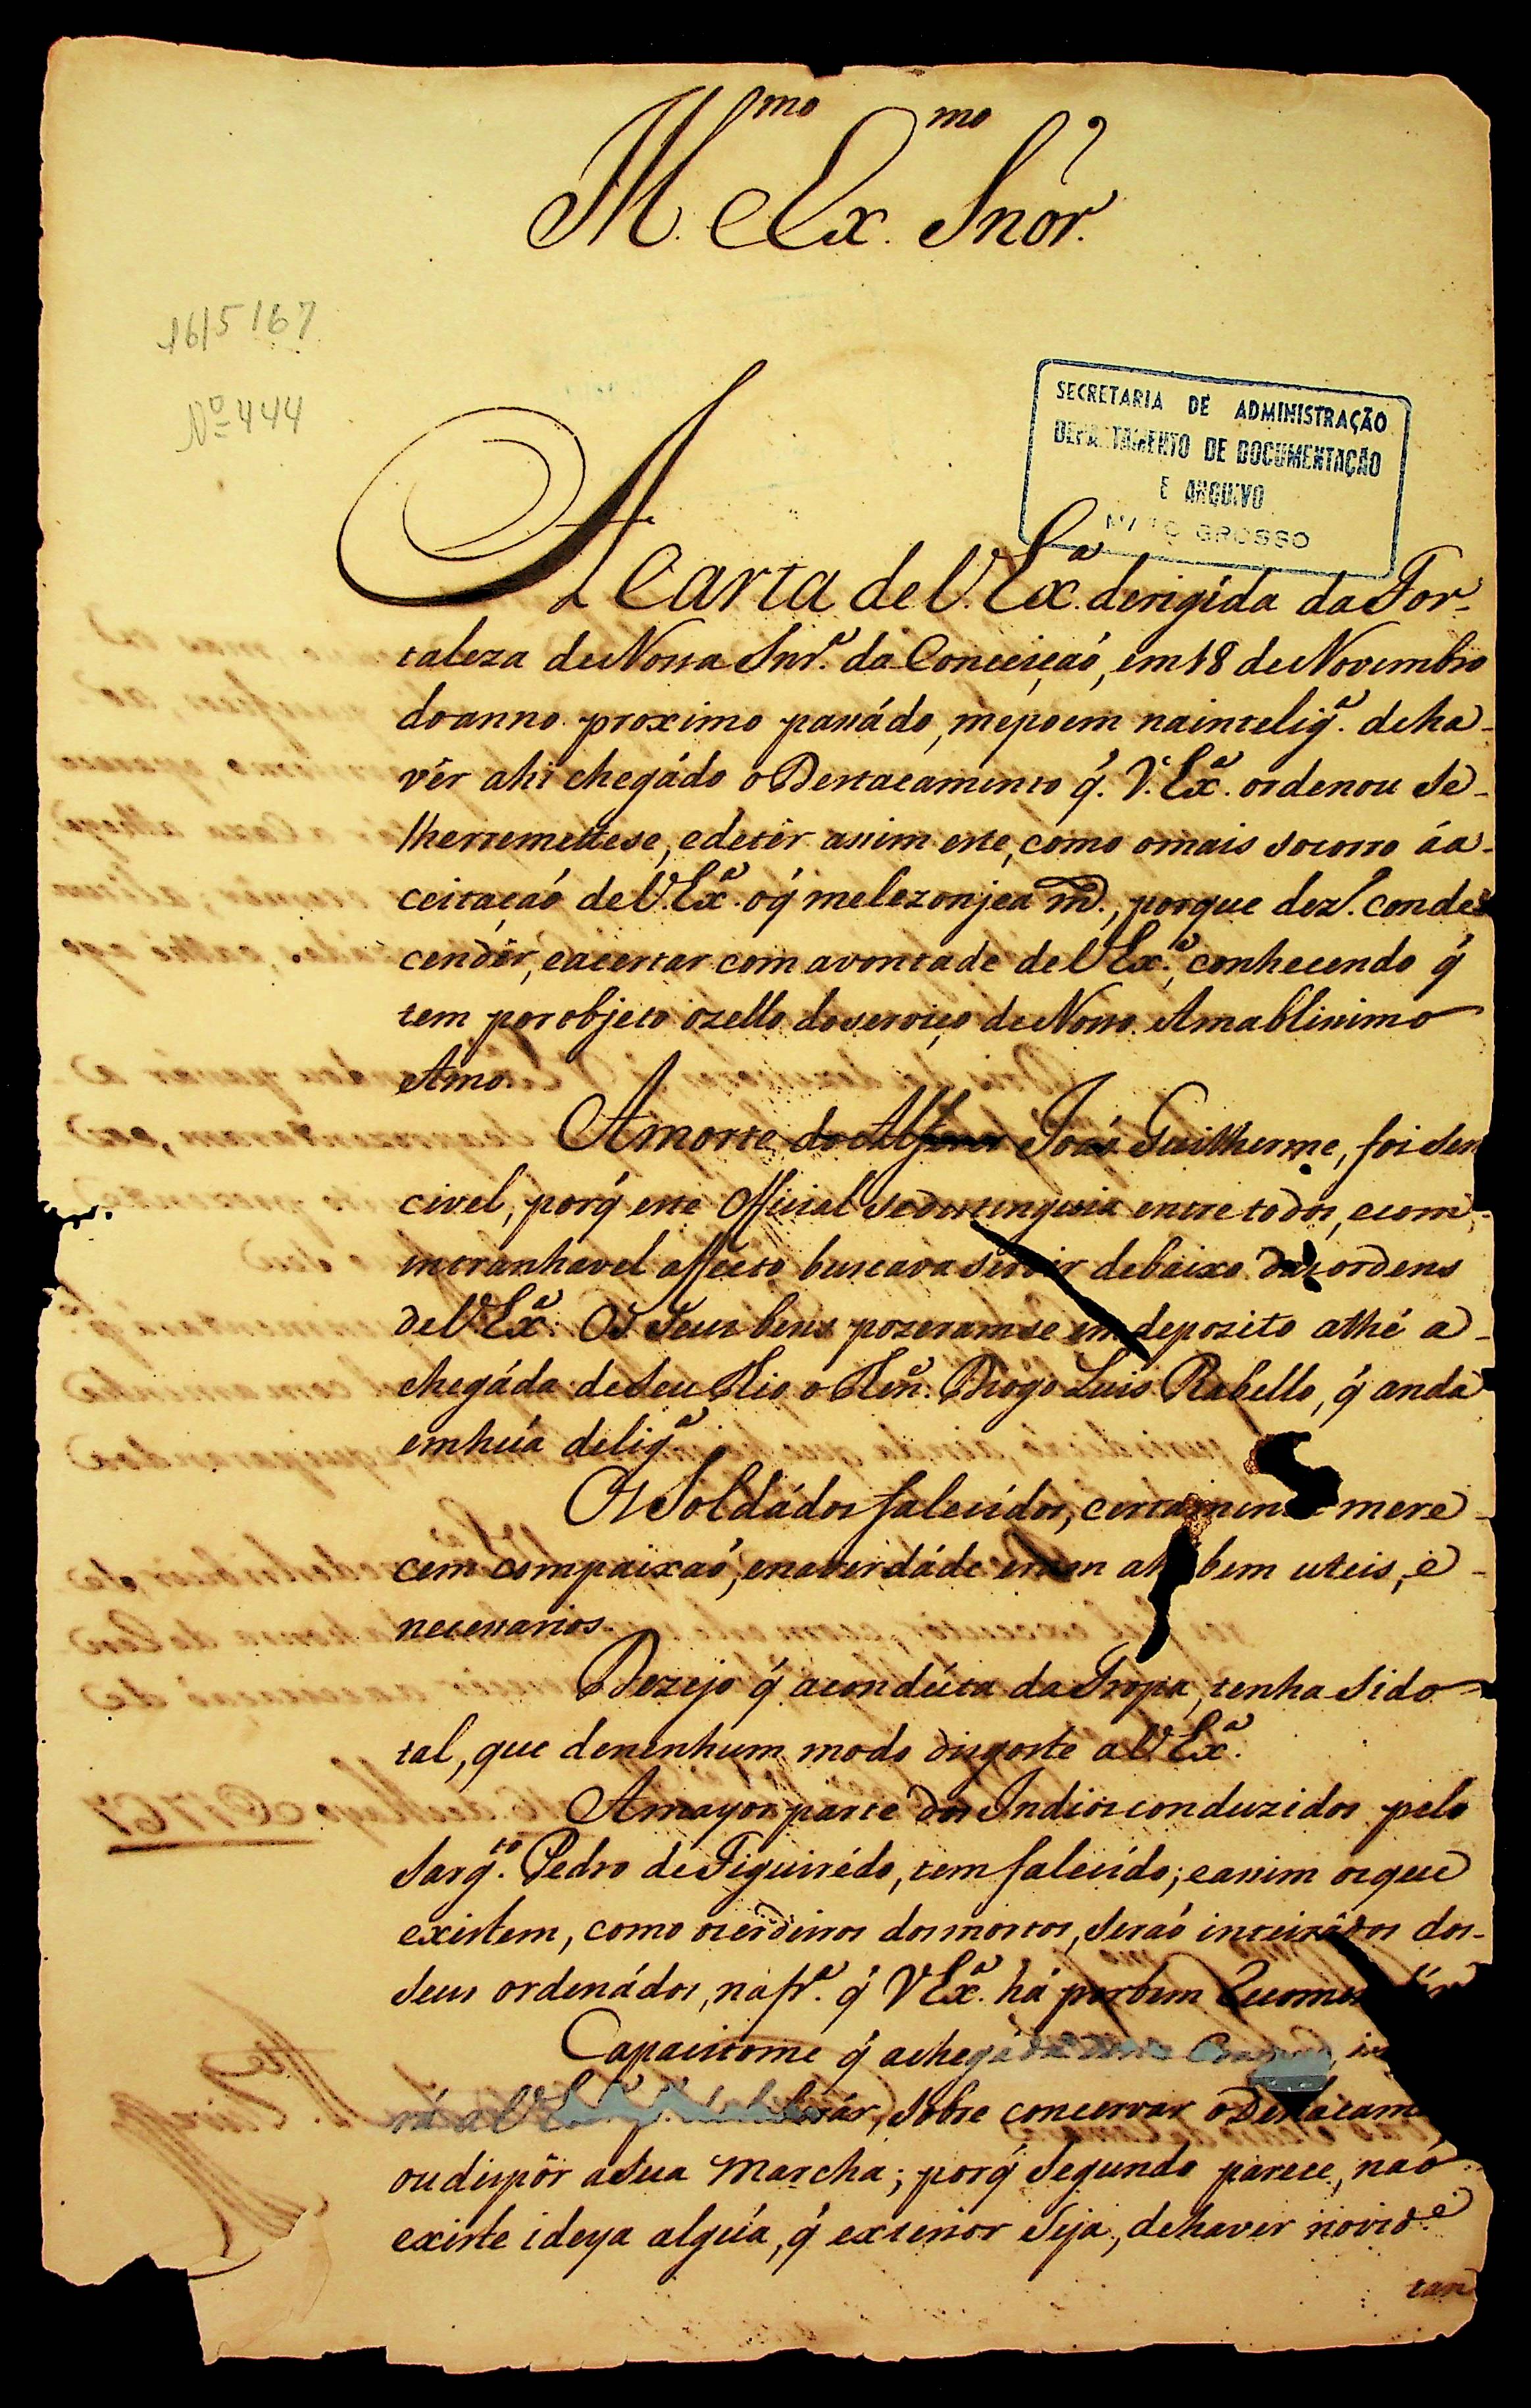 Ill.mo e Ex.mo Snor.
16/5/67
Nº 444
SECRETARIA DE ADMINISTRAÇÃO
DEPARTAMENTO DE DOCUMENTAÇÃO
E ARQUIVO
MATO GROSSO
A Carta de V. Ex.ª derigida da For-
taleza de Nossa Snr.ª da Conceiçaõ, em 18 de Novembro
do anno proximo passádo, mepoem naintelig.ª deha-
vêr ahi chegádo o Destacamento q̃. V. Ex.ª ordenou Se-
lherremettese, edetêr assim este, como omais socorro áa-
ceitaçaõ deV. Ex.ª oq̃ melezonjea m.to, porque dez.º condes
cendêr, eacertar com avontade de V Ex.ª, conhecendo q̃
tem porobjeto ozello doserviço de Nosso Amablissimo
Amo.
Amorte do Alferes Joaõ Guilherme, foi Sen
civel, porq̃ este Official sedestinguia entre todos, ecom
intranhavel affecto buscava servir debaixo das ordens
deV Ex.ª Os Seus bens pozeramse em depozito athé a
chegáda deSeu Tio o Ten.e Diogo Luis Rabello, q̃ anda
emhúa delig.ª
Os Soldádos falecidos, certamente mere-
cem compaixaõ, enaverdáde eram ahi bem uteis, e
necessarios.
Dezejo q̃ acondúta da Tropa, tenha Sido
tal, que denenhum modo disgoste aV Ex.ª
Amayor parte dos Indios conduzidos pelo
Sarg.to Pedro de Figuirêdo, tem falecído; eassim osque
existem, como oserdeiros dosmortos, seraõ inteirádos dos
Seus ordenádos, nafr.ª q̃ V Ex.ª há porbem
Capacitome q̃ achegáda
rá a V Ex.ª sobre concervar o Destacam
oudispôr aSua Marcha; porq̃ Segundo parece, naõ
existe ideya algúa, q̃ exterior Seja, dehaver novid.e
tan